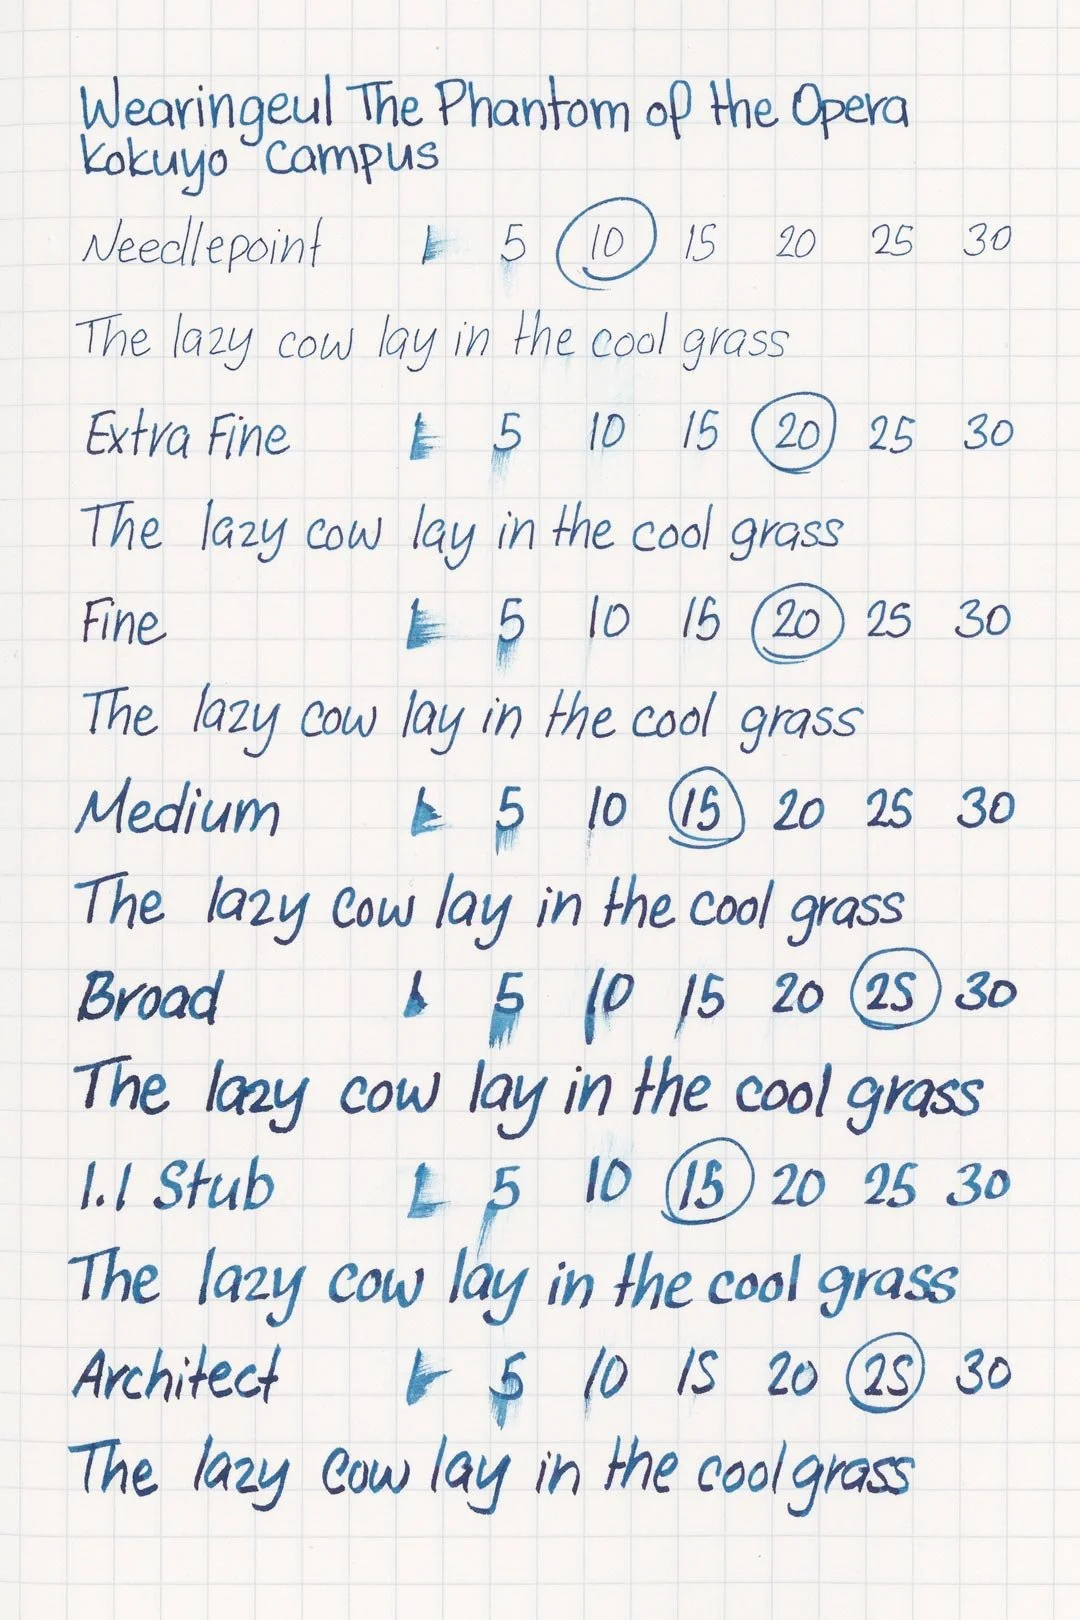 Wearingeul The Phantom of the Opera
Kokuyo Campus
Needlepoint 1 5 10 15 20 25 30
The lazy cow lay in the cool grass
Extra Fine 1 5 10 15 20 25 30
The lazy cow lay in the cool grass
Fine 1 5 10 15 20 25 30
The lazy cow lay in the cool grass
Medium 1 5 10 15 20 25 30
The lazy cow lay in the cool grass
Broad 1 5 10 15 20 25 30
The lazy cow lay in the cool grass
1.1 Stub 1 5 10 15 20 25 30
The lazy cow lay in the cool grass
Architect 1 5 10 15 20 25 30
The lazy cow lay in the cool grass